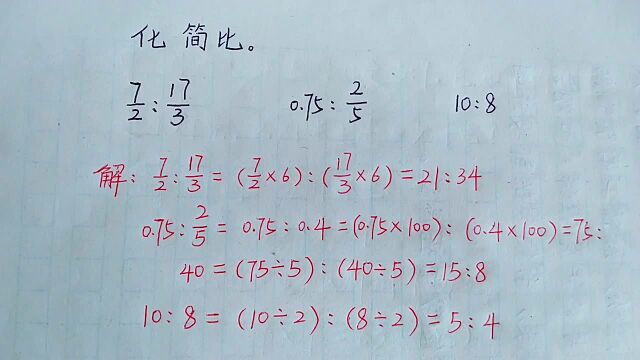 化 简比。
7/2 : 17/3 0.75 : 2/5 10:8
解: 7/2 : 17/3 = (7/2 × 6) : (17/3 × 6) = 21:34
0.75 : 2/5 = 0.75 : 0.4 = (0.75×100) : (0.4×100) = 75:
40 = (75÷5) : (40÷5) = 15:8
10 : 8 = (10÷2) : (8÷2) = 5:4